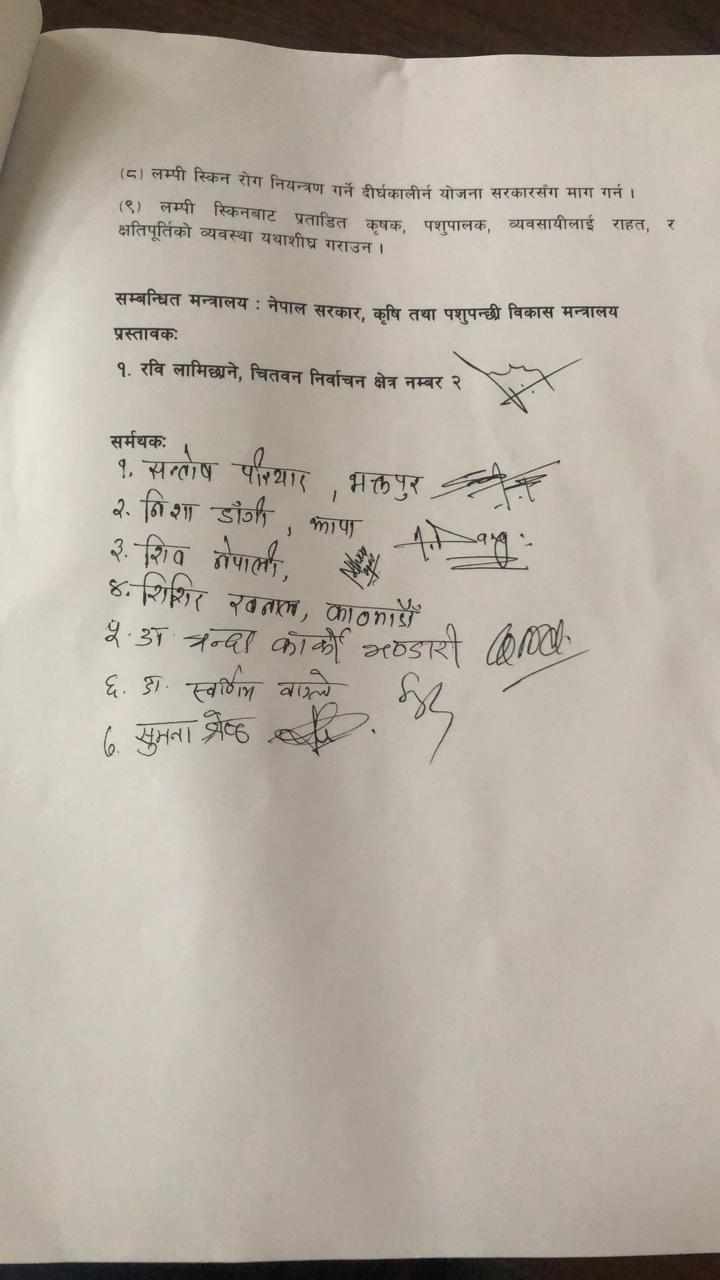 (८) लम्पी स्किन रोग नियन्त्रण गर्ने दीर्घकालीन योजना सरकारसँग माग गर्न ।
(९) लम्पी स्किनबाट प्रताडित कृषक, पशुपालक, व्यवसायीलाई राहत, र
क्षतिपूर्तिको व्यवस्था यथाशीघ्र गराउन ।
सम्बन्धित मन्त्रालय : नेपाल सरकार, कृषि तथा पशुपन्छी विकास मन्त्रालय
प्रस्तावक:
१. रवि लामिछाने, चितवन निर्वाचन क्षेत्र नम्बर २
सर्मथक:
१. सन्तोष परियार, भक्तपुर
२. निशा डाँगी, झापा
३. शिव नेपाली,
४. शिशिर खनाल, काठमाडौँ
५. डा चन्दा कार्की भण्डारी
६. डा. स्वर्णिम वाग्ले
७. सुमना श्रेष्ठ